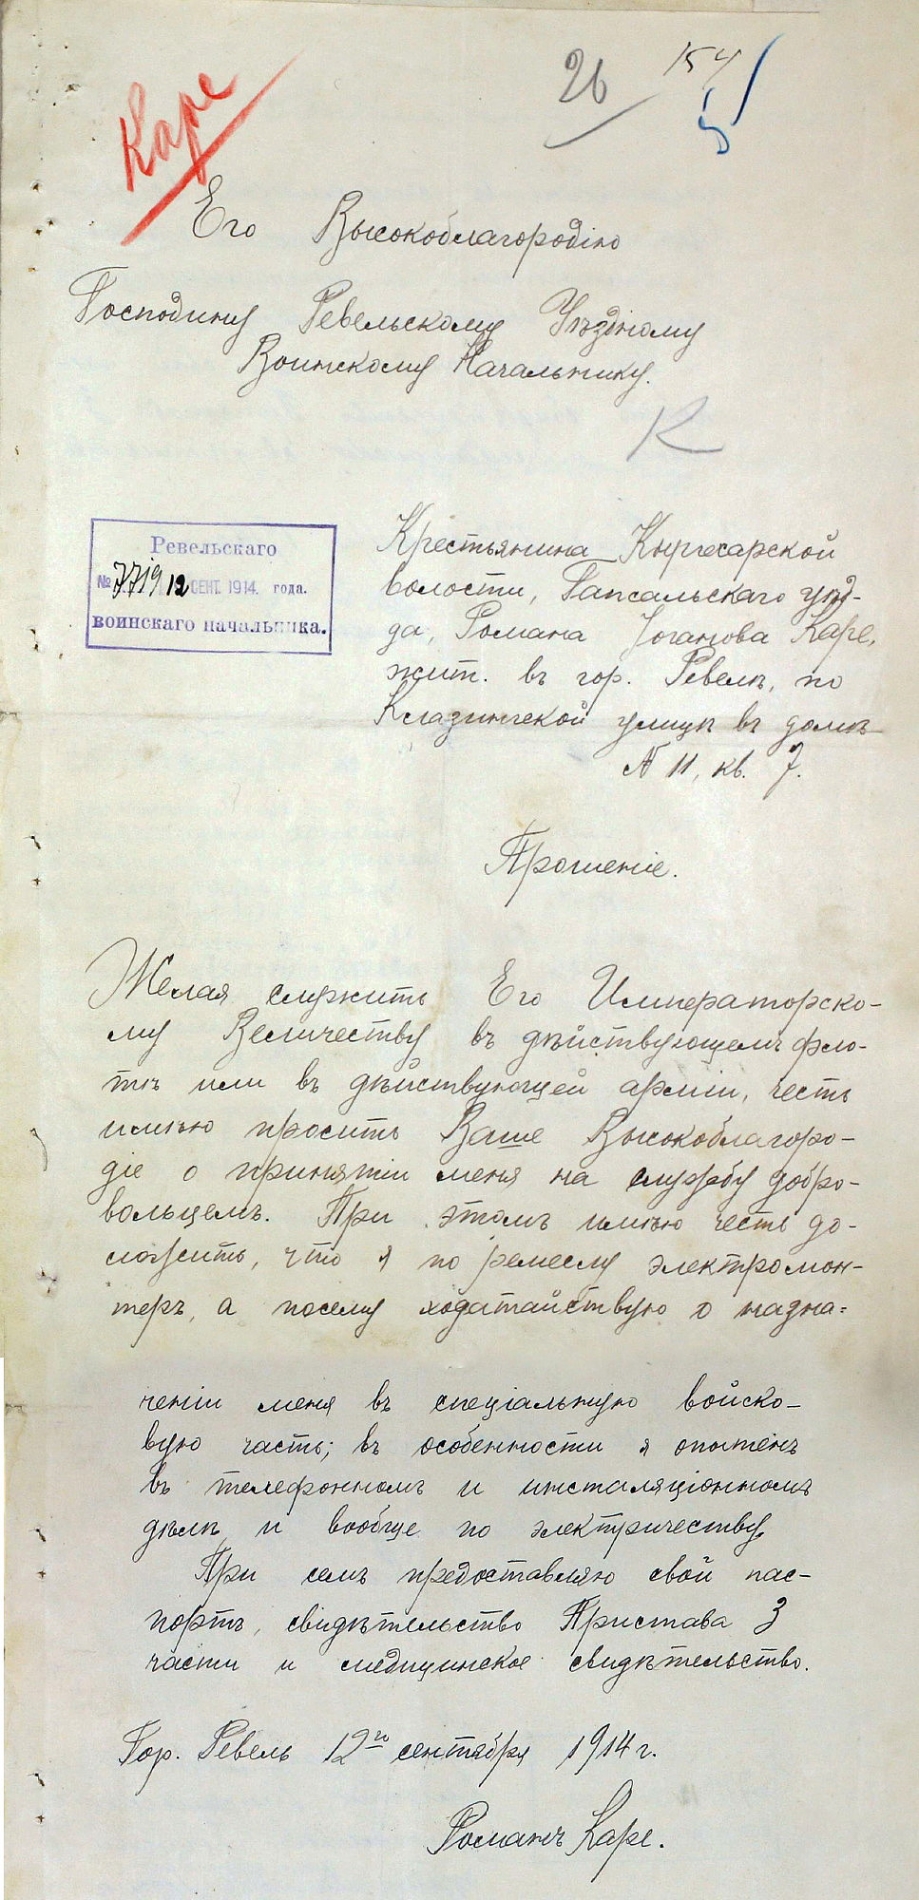 Каре
26
154
Его Высокоблагородію
Господину Ревельскому Уѣздному
Воинскому Начальнику.
К
Ревельскаго
№ 7719 12 СЕНТ. 1914 года.
воинскаго начальника.
Крестьянина Киргесарской
волости, Гапсальскаго уѣз-
да, Романа Іоганова Каре,
жит. въ гор. Ревелѣ, по
улицѣ въ домѣ
№ 11, кв. 7.
Прошеніе.
Желая служить Его Императорско-
му Величеству въ дѣйствующемъ фло-
тѣ или въ дѣйствующей арміи, честь
имѣю просить Ваше Высокоблагоро-
діе о принятіи меня на службу добро-
вольцемъ. При этомъ имѣю честь до-
ложить, что я по ремеслу электромон-
теръ, а посему ходатайствую о назна-
ченіи меня въ спеціальную войско-
вую часть; въ особенности я опытенъ
въ телефонномъ и инсталяціонномъ
дѣлѣ и вообще по электричеству.
При семъ предоставляю свой пас-
портъ, свидѣтельство Пристава 3
части и медицинское свидѣтельство.
Гор. Ревель 12го сентября 1914 г.
Романъ Каре.